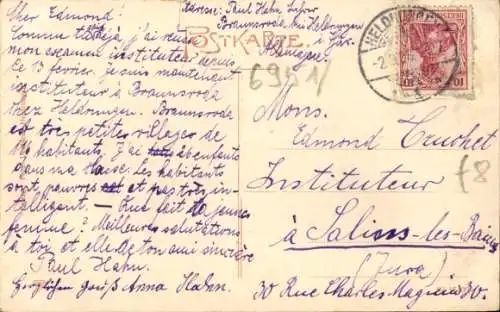 Cher Edmond!
Comme tu déjà j'ai reussi
mon examen instituteur depuis
le 13 fevrier. Je suis maintenant
instituteur à Braunsroda
chez Heldrungen. Braunsroda
est très petit village de
habitants. J'ai enfants
dans ma classe. Les habitants
sont pauvres et pas très in-
telligent. — Que fait ta jeune
femme? Meilleures salutations
à toi et elle de ton ami sincère
Paul Hahn.
Herzlichen Gruß Anna Hahn.
Adresse: Paul Hahn, Lehrer
Braunsroda bei Heldrungen
i. Thür.
Allemagne.
POSTKARTE
6951/
HELDRUNGEN
10 10
Mons.
Edmond Cruchet
Instituteur
f8
à Salins-les-Bains
(Jura)
30 Rue Charles Magnin 30.